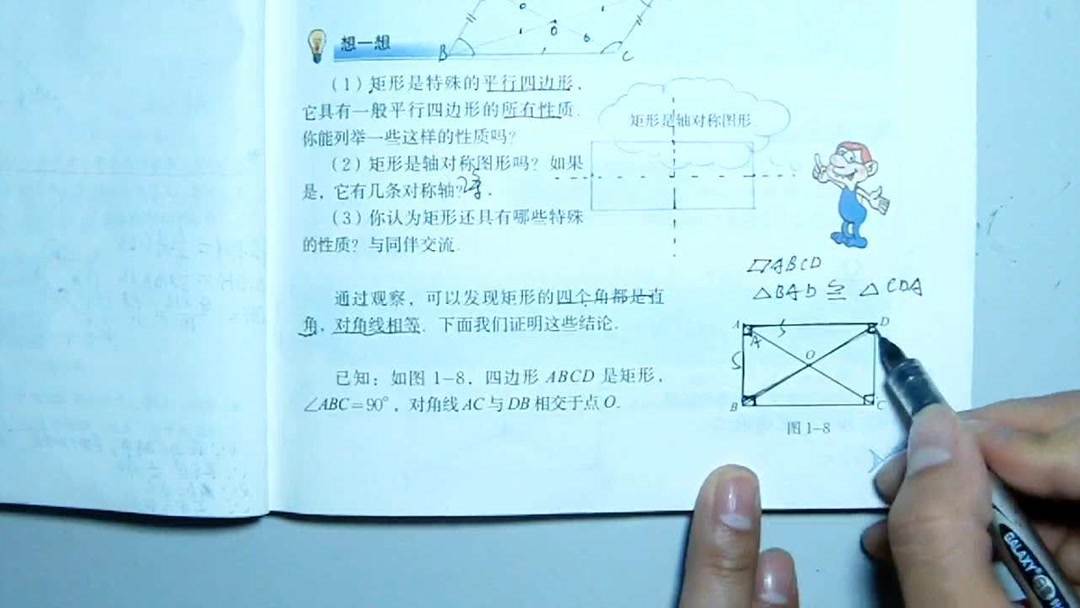 想一想
B
O
C
(1) 矩形是特殊的平行四边形，
它具有一般平行四边形的所有性质．
你能列举一些这样的性质吗？
(2) 矩形是轴对称图形吗？如果
是，它有几条对称轴？2条．
(3) 你认为矩形还具有哪些特殊
的性质？与同伴交流．
矩形是轴对称图形
通过观察，可以发现矩形的四个角都是直
角，对角线相等．下面我们证明这些结论．
已知：如图 1-8，四边形 ABCD 是矩形，
∠ABC=90°，对角线 AC 与 DB 相交于点 O．
▱ABCD
△BAD ≌ △CDA
A
S
D
A
S
O
B
C
图 1-8
GALAXY